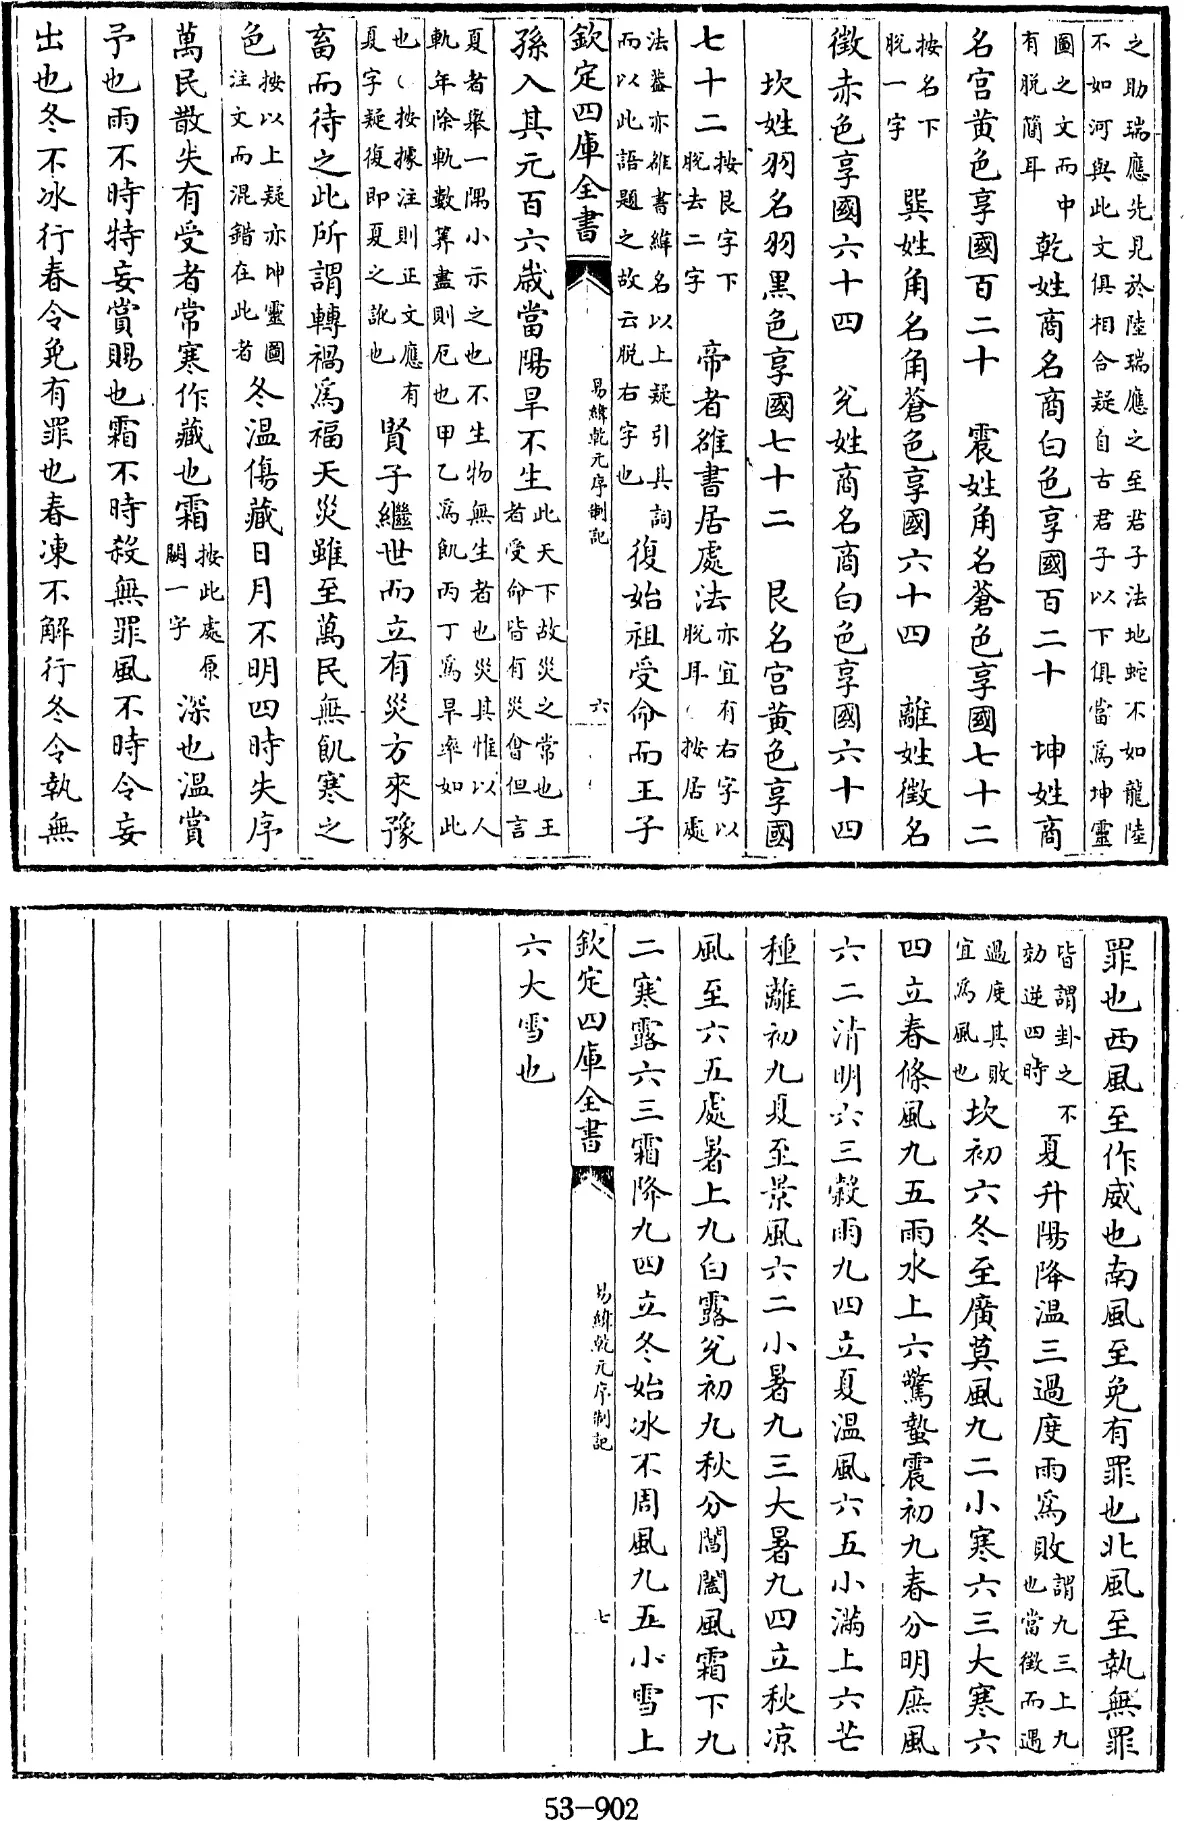 之助瑞應先見於陸瑞應之至君子法地蛇不如龍陸
不如河與此文俱相合疑自古君子以下俱當爲坤靈
圖之文而中
有脱簡耳
乾姓商名商白色享國百二十　坤姓商
名宫黄色享國百二十　震姓角名蒼色享國七十二
按名下
脱一字
巽姓角名角蒼色享國六十四　離姓徵名
徵赤色享國六十四　兑姓商名商白色享國六十四
坎姓羽名羽黑色享國七十二　艮名宫黄色享國
七十二
按艮字下
脱去二字
帝者雒書居處法
亦宜有右字以
脱耳（按居處
法蓋亦雒書緯名以上疑引其詞
而以此語題之故云脱右字也
復始祖受命而王子
欽定四庫全書
易緯乾元序制記
六
孫入其元百六歲當陽旱不生
此天下故災之常也王
者受命皆有災曾但言
夏者舉一隅小示之也不生物無生者也災其惟以人
軌年除軌數算盡則厄也甲乙爲飢丙丁爲旱率如此
也（按據注則正文應有
夏字疑復即夏之訛也
賢子繼世而立有災方來豫
畜而待之此所謂轉禍爲福天災雖至萬民無飢寒之
色
按以上疑亦坤靈圖
注文而混錯在此者
冬温傷藏日月不明四時失序
萬民散失有受者常寒作藏也霜
按此處原
闕一字
深也温賞
予也雨不時特妄賞賜也霜不時殺無罪風不時令妄
出也冬不冰行春令免有罪也春凍不解行冬令執無
罪也西風至作威也南風至免有罪也北風至執無罪
皆謂卦之不
効逆四時
夏升陽降温三過度雨爲敗
謂九三上九
也當徵而過
過度其敗
宜爲風也
坎初六冬至廣莫風九二小寒六三大寒六
四立春條風九五雨水上六驚蟄震初九春分明庶風
六二清明六三穀雨九四立夏温風六五小滿上六芒
種離初九夏至景風六二小暑九三大暑九四立秋涼
風至六五處暑上九白露兑初九秋分閶闔風霜下九
二寒露六三霜降九四立冬始冰不周風九五小雪上
欽定四庫全書
易緯乾元序制記
七
六大雪也
53-902